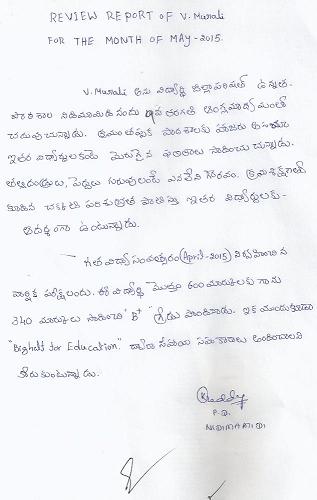 REVIEW REPORT OF V. Murali
FOR THE MONTH OF MAY-2015.
V. Murali అను విద్యార్థి జిల్లాపరిషత్ ఉన్నత
పాఠశాల నిడిమామిడి నందు తరగతి ఆంగ్లమాధ్యమంలో
చదువుచున్నాడు. క్రమం తప్పక పాఠశాలకు హాజరు అగుచూ
ఇతర విద్యార్థులకంటే మెరుగైన ఫలితాలు సాధించుచున్నాడు.
తల్లిదండ్రులు, పెద్దలు గురువులంటే ఎనలేని గౌరవం. క్రమశిక్షణతో
కూడిన చక్కటి పరిశుభ్రత పాటిస్తూ ఇతర విద్యార్థులకు
ఆదర్శంగా ఉంటున్నాడు.
గత విద్యాసంవత్సరం (April-2015) నిర్వహించిన
వార్షిక పరీక్షలందు. ఈ విద్యార్థి మొత్తం 600 మార్కులకు గాను
340 మార్కులు సాధించి "B+" గ్రేడు పొందినాడు. ఇక ముందు కూడా
"Bighelp for Education" ద్వారా సహాయ సహకారాలు అందించాలని
కోరుకుంటున్నాడు.
P.D.
NIDIMAMIDI